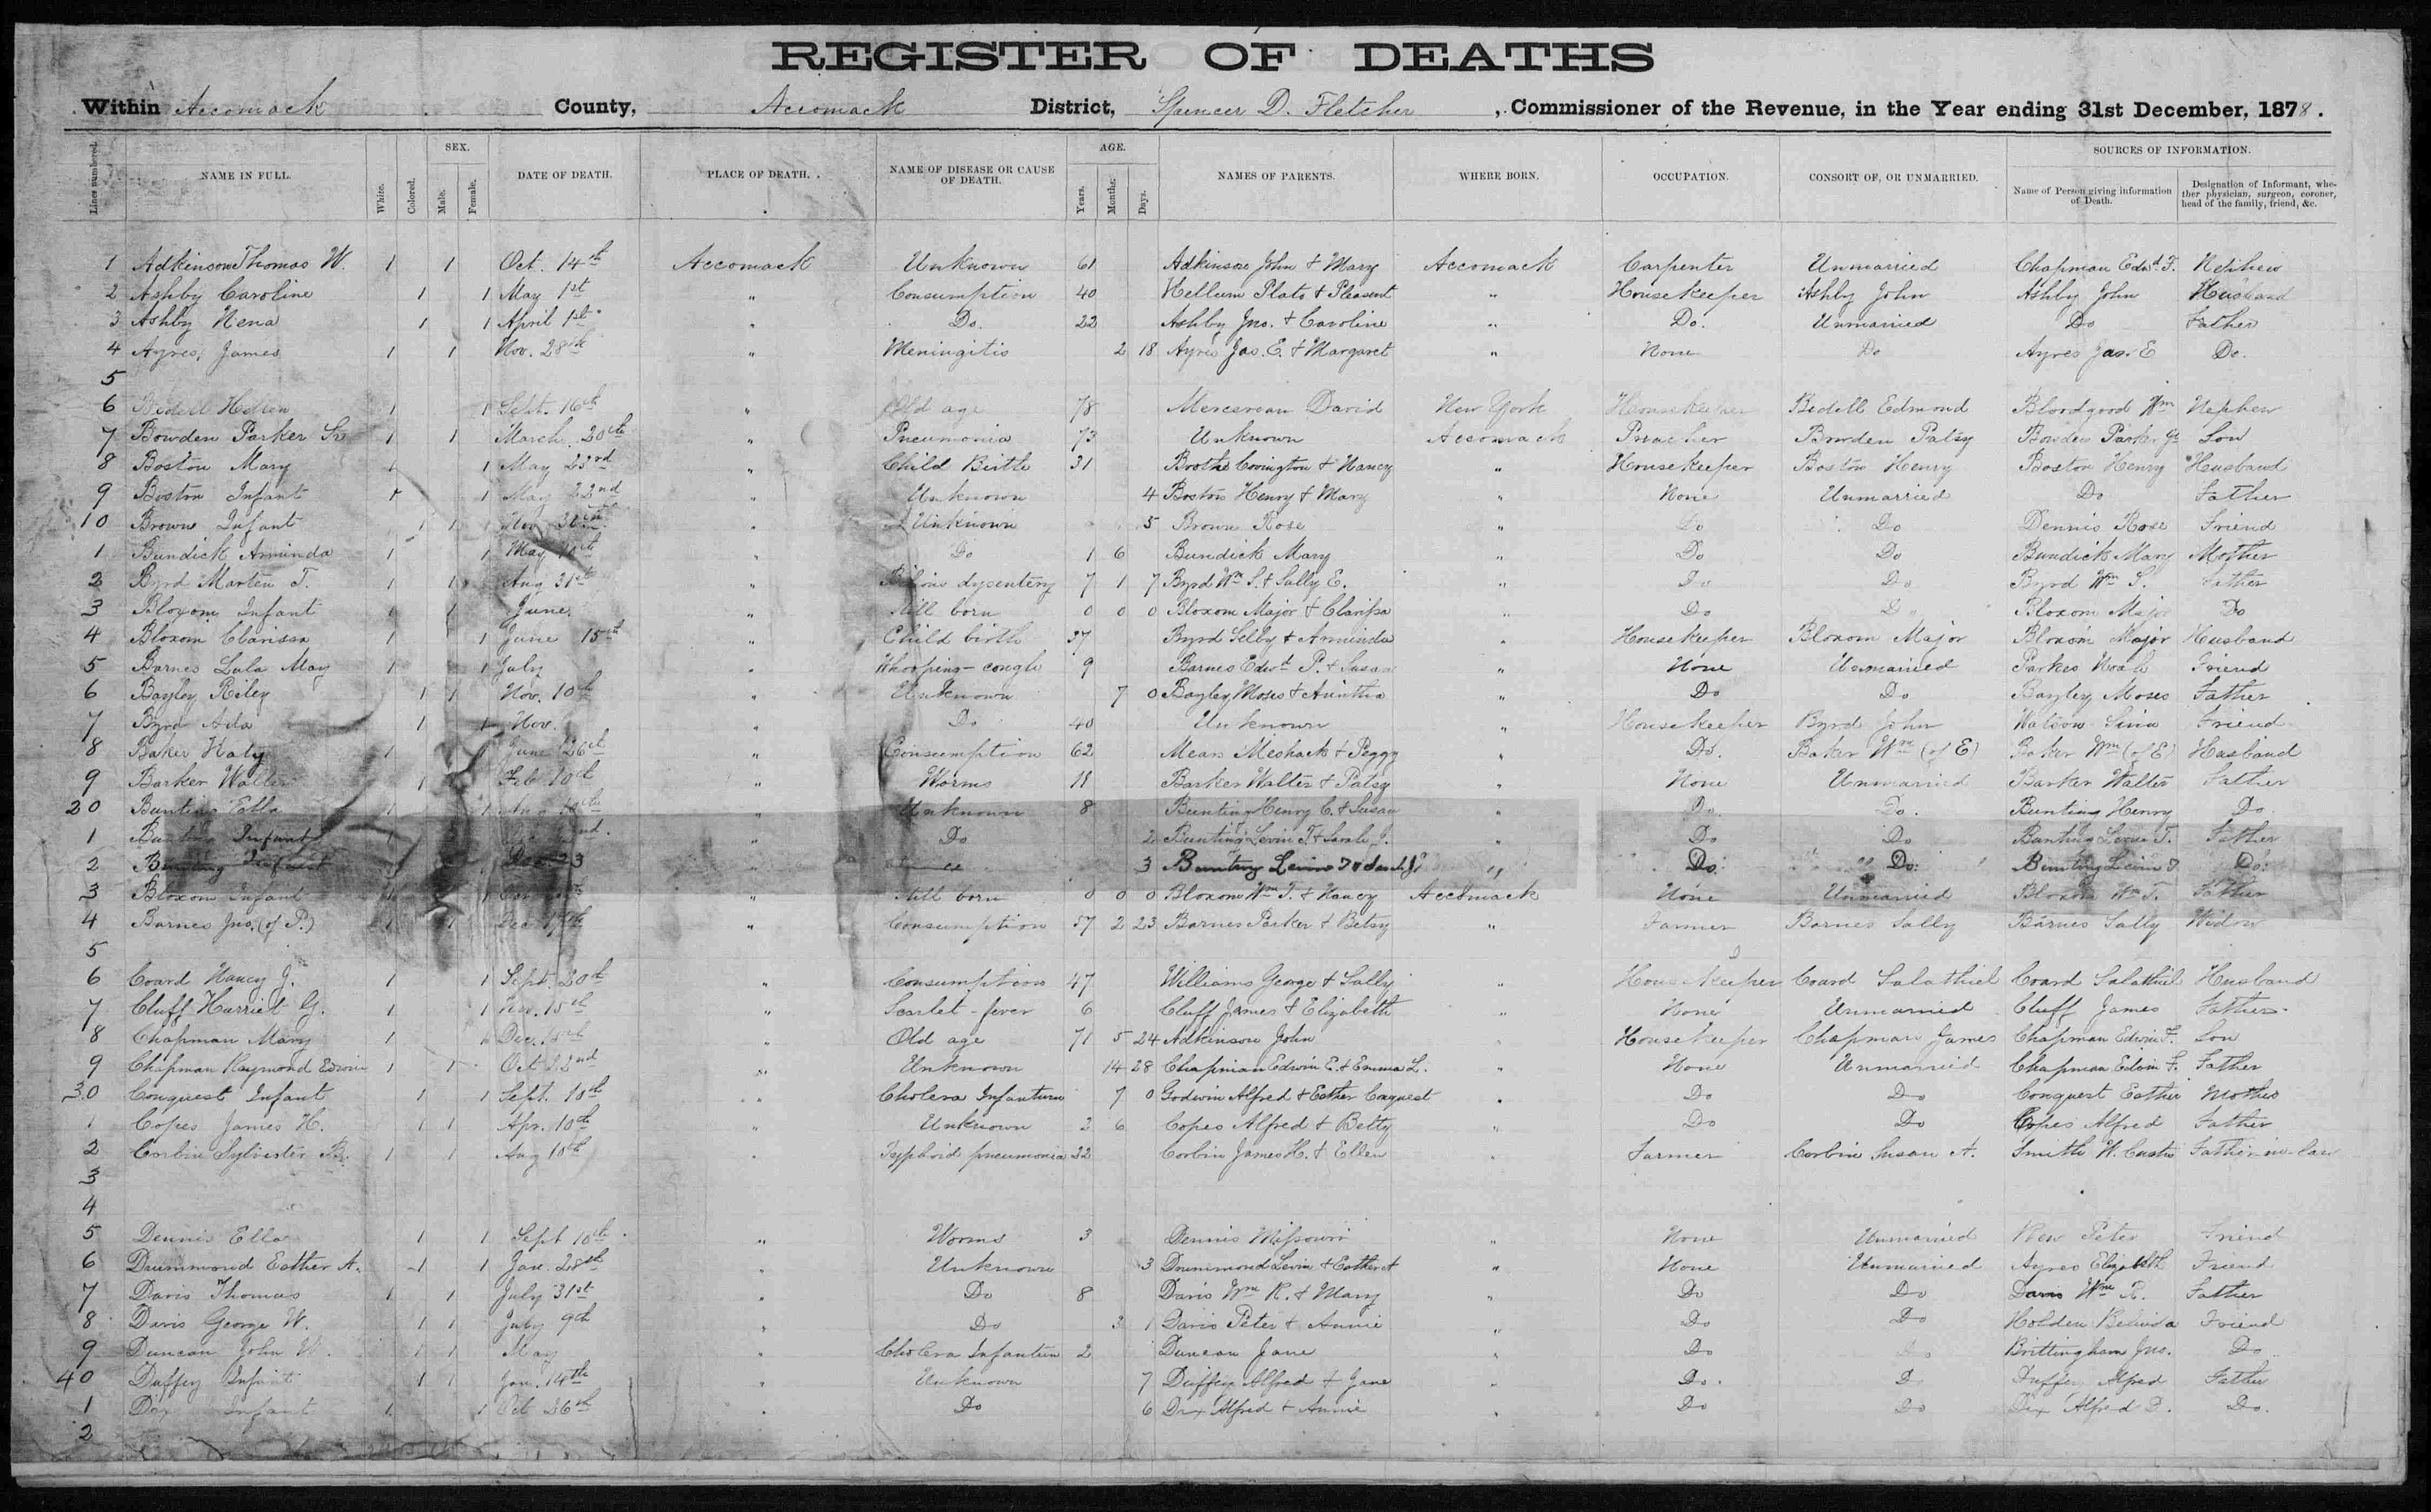 REGISTER OF DEATHS
Within Accomack County, Accomack District, Spencer D. Fletcher, Commissioner of the Revenue, in the Year ending 31st December, 1878.
Lines numbered. NAME IN FULL. White. Colored. SEX. Male. Female. DATE OF DEATH. PLACE OF DEATH. NAME OF DISEASE OR CAUSE OF DEATH. AGE. Years. Months. Days. NAMES OF PARENTS. WHERE BORN. OCCUPATION. CONSORT OF, OR UNMARRIED. SOURCES OF INFORMATION. Name of Person giving information of Death. Designation of Informant, whether physician, surgeon, coroner, head of the family, friend, &c.
1 Adkinson Thomas W. 1 1 Oct. 14th Accomack Unknown 61 Adkinson John & Mary Accomack Carpenter Unmarried Chapman Edwd F. Nephew
2 Ashby Caroline 1 1 May 1st " Consumption 40 Kellum Plato & Pleasent " Housekeeper Ashby John Ashby John Husband
3 Ashby Nena 1 1 April 1st " Do. 22 Ashby Jno. & Caroline " Do. Unmarried Do Father
4 Ayres, James 1 1 Nov. 28th " Meningitis 2 18 Ayres Jas. E. & Margaret " None Do Ayres Jas. E Do.
5
6 Bedell Hester 1 1 Sept. 16th " Old age 78 Mercereau David New York Housekeeper Bedell Edmond Bloodgood Wm Nephew
7 Bowden Parker Sr 1 1 March 20th " Pneumonia 73 Unknown Accomack Preacher Bowden Patsy Bowden Parker Jr Son
8 Boston Mary 1 1 May 23rd " Child Birth 31 Broths Covington & Nancy " Housekeeper Boston Henry Boston Henry Husband
9 Boston Infant 1 1 May 22nd " Unknown 4 Boston Henry & Mary " None Unmarried Do Father
10 Brown Infant 1 1 Nov. " Unknown 5 Brown Rose " Do Do Dennis Rose Friend
1 Bundick Arminda 1 1 May 10th " Do 1 6 Bundick Mary " Do Do Bundick Mary Mother
2 Byrd Marten T. 1 1 Aug 31st " Bilious dysentery 7 1 7 Byrd Wm S. & Sally E. " Do Do Byrd Wm S. Father
3 Bloxom Infant 1 1 June " Still born 0 0 0 Bloxom Major & Clarissa " Do Do Bloxom Major Do
4 Bloxom Clarissa 1 1 June 15th " Child birth 37 Byrd Selby & Arminda " Housekeeper Bloxom Major Bloxom Major Husband
5 Barnes Lula May 1 1 July " Whooping-cough 9 Barnes Edwd P. & Susan " None Unmarried Parkes Noah Friend
6 Bayley Riley 1 1 Nov. 10th Unknown 7 0 Bayley Moses & Arintha " Do Do Bayley Moses Father
7 Byrd Ada 1 1 Nov. " Do 40 Unknown " Housekeeper Byrd John Watson Friend
8 Baker Katy 1 June 26th " Consumption 62 Mears Meshack & Peggy " Do. Baker Wm (of E) Baker Wm (of E) Husband
9 Barker Walter 1 Feb 10th " Worms 11 Barker Walter & Patsy " None Unmarried Barker Walter Father
20 Bunting Ella 1 1 " Unknown 8 Bunting Henry C. & Susan " Do. Do. Bunting Henry Do
1 Bunting Infant 2nd. " Do 2 Bunting Levin T. & Sarah J. " Do Do Bunting Levin T. Father
2 Bunting Infant Dec 23 3 Bunting Levin T & Sarah J. " Do. Do. Bunting Levin T Do.
3 Bloxom Infant " Still born 0 0 0 Bloxom Wm T. & Nancy Accomack None Unmarried Bloxom Wm T. Father
4 Barnes Jno. (of P.) 1 1 Dec " Consumption 57 2 23 Barnes Parker & Betsy " Farmer Barnes Sally Barnes Sally Widow
5
6 Coard Nancy J. 1 1 Sept. 20th " Consumption 47 Williams George & Sally " Housekeeper Coard Salathiel Coard Salathiel Husband
7 Cluff Harriet G. 1 1 Nov. 15th " Scarlet-fever 6 Cluff James & Elizabeth " None Unmarried Cluff James Father
8 Chapman Mary 1 1 Dec. " Old age 71 5 24 Adkinson John " Housekeeper Chapman James Chapman Edwin F. Son
9 Chapman Raymond Edwin 1 1 Oct 22nd " Unknown 14 28 Chapman Edwin E. & Emma L. " None Unmarried Chapman Edwin F. Father
30 Conquest Infant 1 1 Sept. 10th " Cholera Infantum 7 0 Godwin Alfred & Esther Conquest " Do Do Conquest Esther Mother
1 Copes James H. 1 1 Apr. 10th " Unknown 2 6 Copes Alfred & Betty " Do Do Copes Alfred Father
2 Corbin Sylvester 1 1 Aug 10th " Typhoid pneumonia 22 Corbin James H. & Ellen " Farmer Corbin Susan A. Smith W. Custis Father-in-law
3
4
5 Dennis Ella 1 1 Sept 10th " Worms 3 Dennis Missouri " None Unmarried Rew Peter Friend
6 Drummond Esther A. 1 1 Jan. 28th " Unknown 3 Drummond Levin & Esther A " None Unmarried Ayres Elizabeth Friend
7 Davis Thomas 1 1 July 31st " Do 8 Davis Wm R. & Mary " Do Do Davis Wm R. Father
8 Davis George W. 1 1 July 9th " Do 3 1 Davis Peter & Annie " Do Do Holden Belinda Friend
9 Duncan John W. 1 1 May " Cholera Infantum 2 Duncan Jane " Do Do Brittingham Jno. Do
40 Duffey Infant 1 1 Jan. 14th " Unknown 7 Duffey Alfred & Jane " Do. D Duffey Alfred Father
1 Dix Infant 1 1 Oct 26th " Do 6 Dix Alfred & Annie " Do Do Dix Alfred D. Do.
2